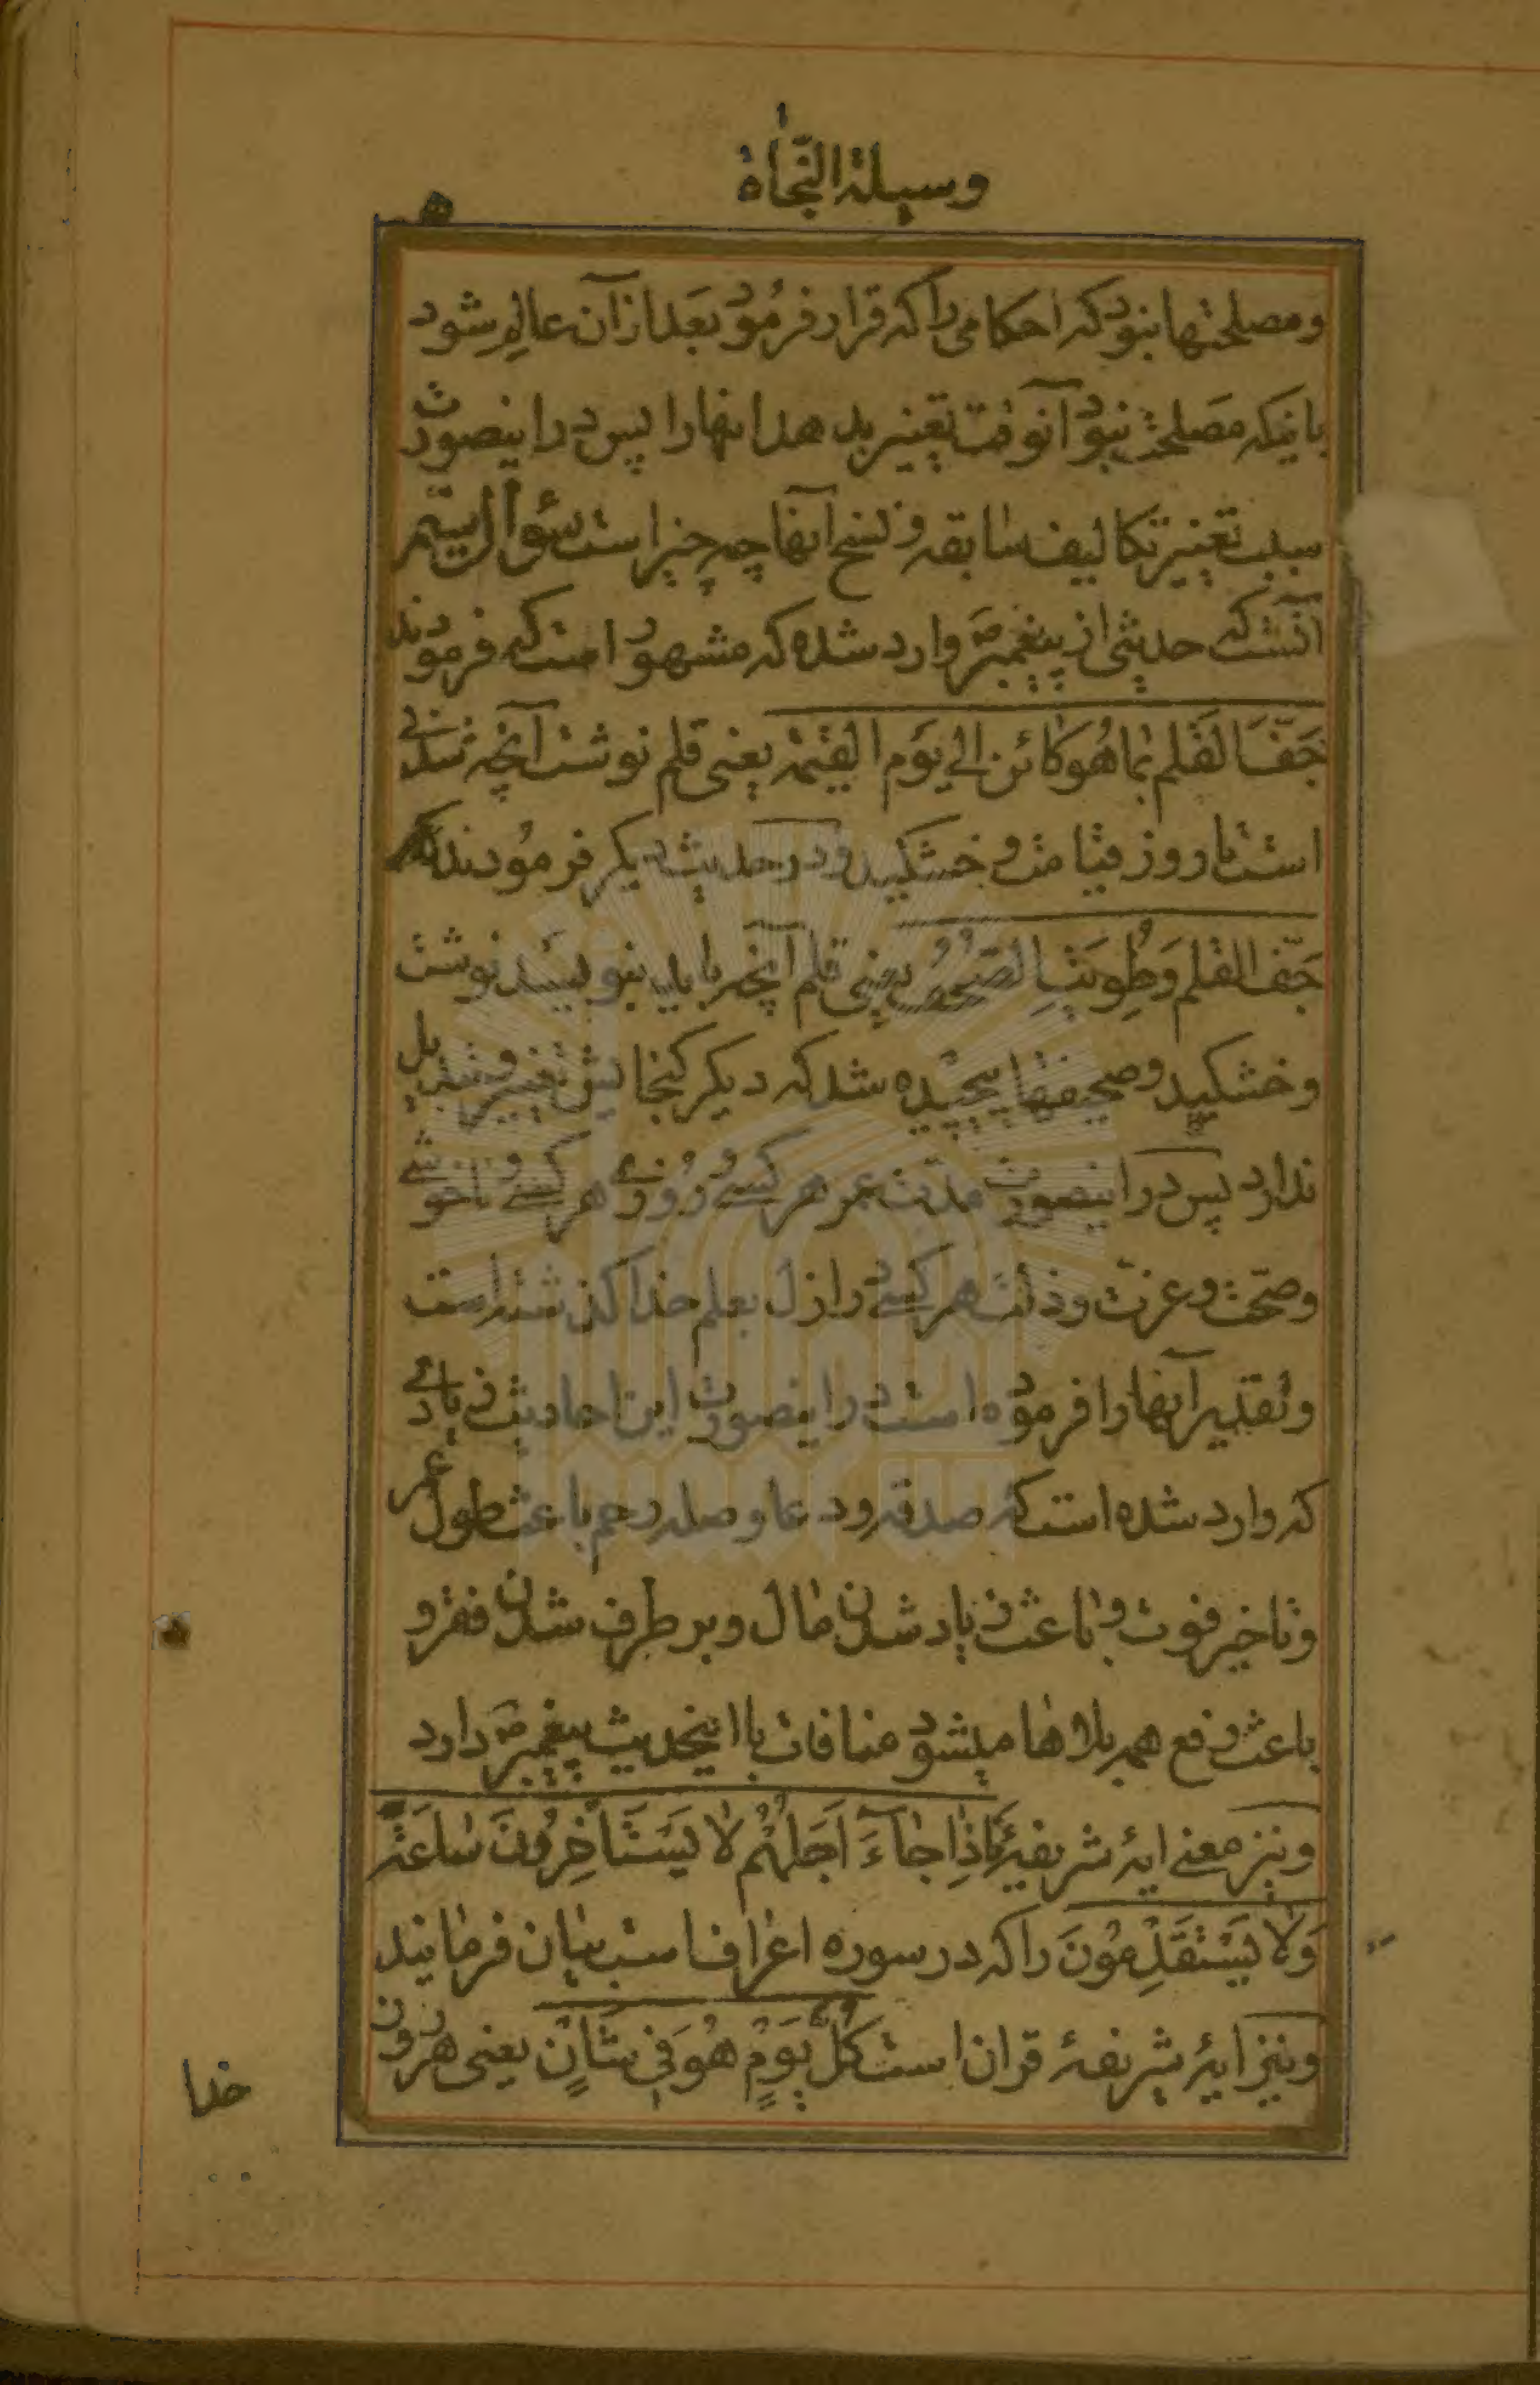 وسیلة النّجاة
و مصلحتها نبود که احکامی را که قرار فرمود بعد از آن عالم شود
باینکه مصلحت نبود آنوقت تغییر بدهد انها را پس در اینصورت
سبب تغییر تکالیف سابقه و نسخ آنها چه چیز است سؤال سیّم
آنست که حدیثی از پیغمبر ص وارد شده که مشهور است که فرمودند
جَفَّ القَلَم بِمَا هُوَ كَائن الی یَوم القیٰمة یعنی قلم نوشت آنچه شدنی
است تا روز قیامت و خشکید و در حدیث دیگر فرمودند که
جَفّ القلم وَطُوِیَتِ الصُّحُفُ یعنی قلم آنچه باید بنویسد نوشت
و خشکید و صحیفها پیچیده شد که دیگر گنجایش تغییر و تبدیل
ندارد پس در اینصورت مدّت عمر هر کسی و روزی هر کسی و ناخوشی
و صحّت و عزت و ذلّت هر کسی در ازل بعلم خدا گذشته است
و تقدیر آنها را فرموده است در اینصورت این احادیث زیادی
که وارد شده است که صدقه و دعا و صله رحم باعث طول عمر
و تاخیر فوت و باعث زیاد شدن مال و بر طرف شدن فقر و
باعث رفع همه بلاها میشود منافات با اینحدیث پیغمبر ص دارد
و نیز معنی ایۀ شریفۀ فَاِذا جٰآءَ اَجَلُهُم لا یَسْتَأخِرُونَ سٰاعَةً
وَلا یَسْتَقْدِمُونَ را که در سوره اعراف است بیان فرمایند
و نیز ایۀ شریفۀ قران است كُلَّ یَوْمٍ هُوَ فِی شَأنٍ یعنی هر روز
خدا